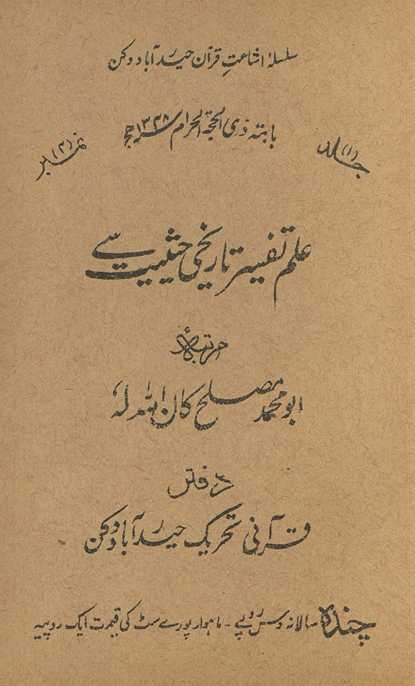 سلسلۂ اشاعتِ قرآن حیدرآباد دکن
بابتہ ذی الحجۃ الحرام ۱۳۴۸ ھج
جلد (۱) نمبر (۲)
علم تفسیر تاریخی حیثیت سے
مرتبہ
ابو محمد مصلح کان اللہ لہٗ
دفتر
قرآنی تحریک حیدرآباد دکن
چندہ سالانہ دس روپے - ماہوار پورے سٹ کی قیمت ایک روپیہ